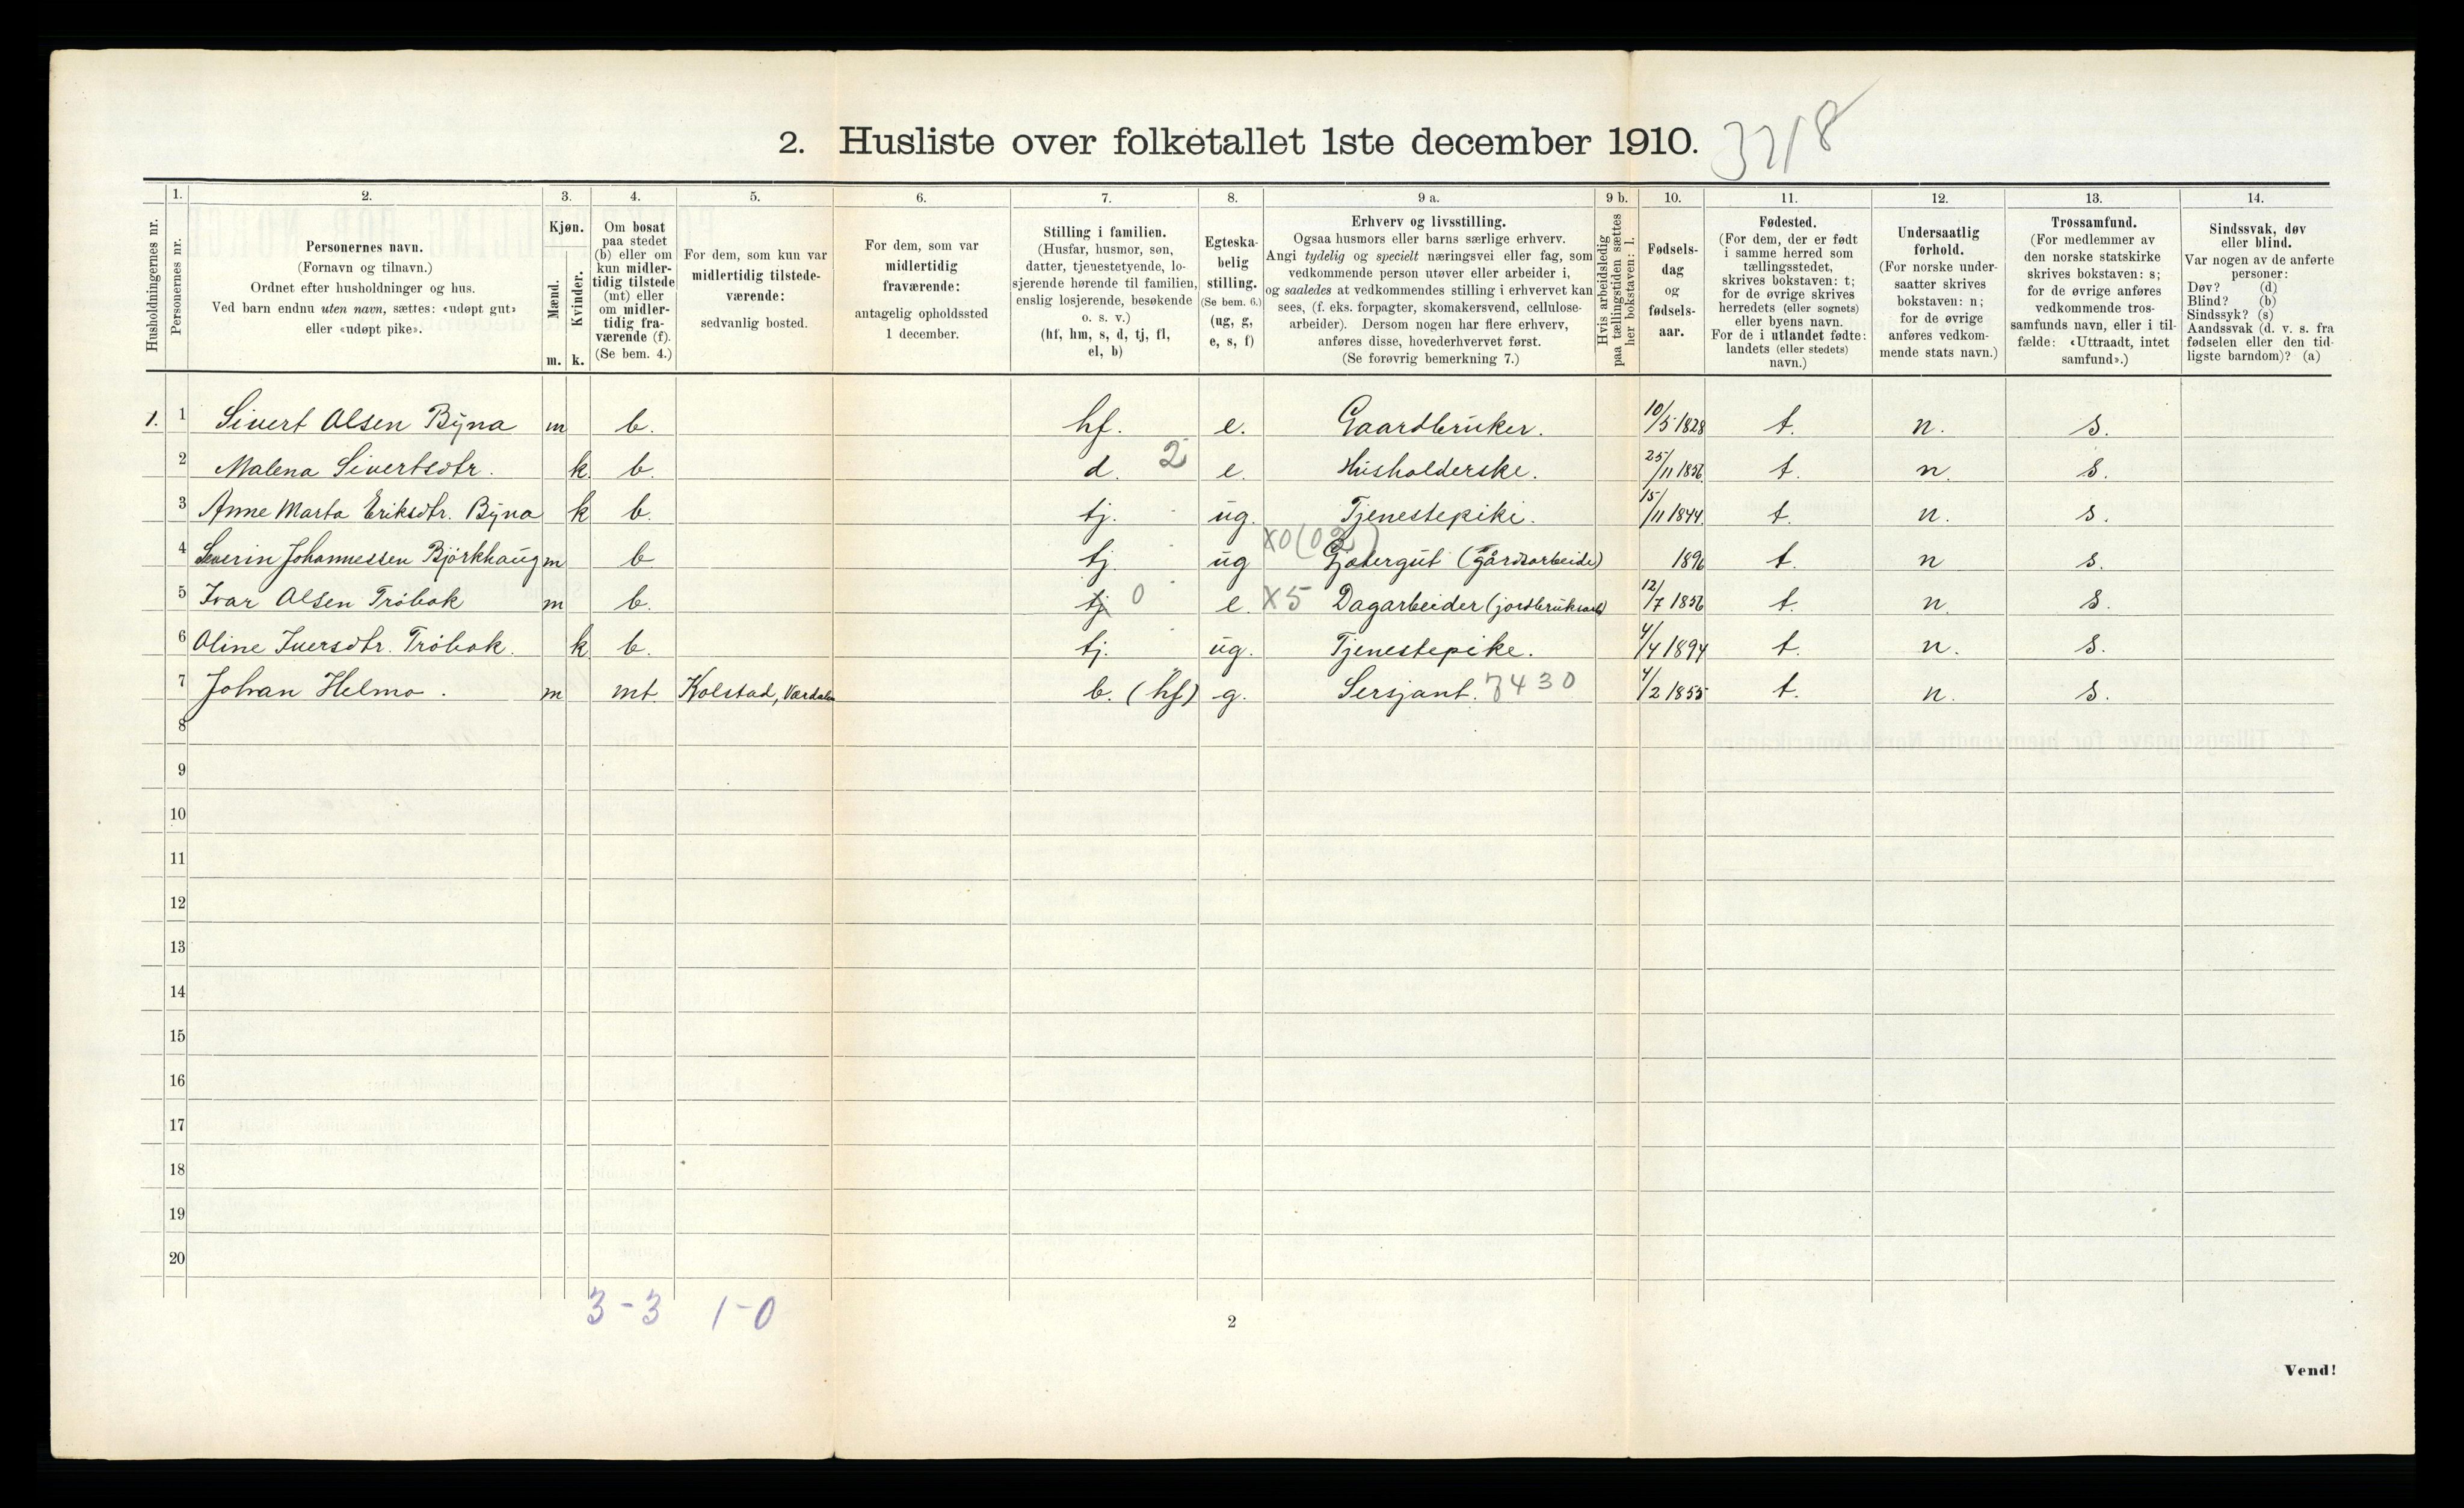 2. Husliste over folketallet 1ste december 1910. 3218
1. 2. 3. 4. 5. 6. 7. 8. 9 a. 9 b. 10. 11. 12. 13. 14.
Husholdningernes nr.
Personernes nr.
Personernes navn.
(Fornavn og tilnavn.)
Ordnet efter husholdninger og hus.
Ved barn endnu uten navn, sættes: «udøpt gut»
eller «udøpt pike».
Kjøn.
Mænd.
Kvinder.
m. k.
Om bosat
paa stedet
(b) eller om
kun midler-
tidig tilstede
(mt) eller
om midler-
tidig fra-
værende (f).
(Se bem. 4.)
For dem, som kun var
midlertidig tilstede-
værende:
sedvanlig bosted.
For dem, som var
midlertidig
fraværende:
antagelig opholdssted
1 december.
Stilling i familien.
(Husfar, husmor, søn,
datter, tjenestetyende, lo-
sjerende hørende til familien,
enslig losjerende, besøkende
o. s. v.)
(hf, hm, s, d, tj, fl,
el, b)
Egteska-
belig
stilling.
(Se bem. 6.)
(ug, g,
e, s, f)
Erhverv og livsstilling.
Ogsaa husmors eller barns særlige erhverv.
Angi tydelig og specielt næringsvei eller fag, som
vedkommende person utøver eller arbeider i,
og saaledes at vedkommendes stilling i erhvervet kan
sees, (f. eks. forpagter, skomakersvend, cellulose-
arbeider). Dersom nogen har flere erhverv,
anføres disse, hovederhvervet først.
(Se forøvrig bemerkning 7.)
Hvis arbeidsledig
paa tællingstiden sættes
her bokstaven: l.
Fødsels-
dag
og
fødsels-
aar.
Fødested.
(For dem, der er født
i samme herred som
tællingsstedet,
skrives bokstaven: t;
for de øvrige skrives
herredets (eller sognets)
eller byens navn.
For de i utlandet fødte:
landets (eller stedets)
navn.)
Undersaatlig
forhold.
(For norske under-
saatter skrives
bokstaven: n;
for de øvrige
anføres vedkom-
mende stats navn.)
Trossamfund.
(For medlemmer av
den norske statskirke
skrives bokstaven: s;
for de øvrige anføres
vedkommende tros-
samfunds navn, eller i til-
fælde: «Uttraadt, intet
samfund».)
Sindssvak, døv
eller blind.
Var nogen av de anførte
personer:
Døv? (d)
Blind? (b)
Sindssyk? (s)
Aandssvak (d. v. s. fra
fødselen eller den tid-
ligste barndom)? (a)
1. 1 Sivert Olsen Byna m b. hf. e. Gaardbruker. 10/5 1828 t. n. s.
2 Malena Sivertsdtr. k. b. d. 2 e. Husholderske. 25/11 1856. t. n. s.
3 Anne Marta Eriksdtr. Byna k b. tj. ug. Tjenestepike. 15/11 1844. t. n. s.
4 Severin Johannessen Bjørkhaug m b tj. ug X0(02) Gjætergut (gårdsarbeide) 1896 t. n s.
5 Ivar Olsen Trøbak m b. tj 0 e. X5 Dagarbeider (jordbruksarb) 12/7 1856 t. n. s.
6 Oline Iversdtr. Trøbak. k. b. tj. ug. Tjenestepike. 4/4 1894 t. n. s.
7 Johan Helmo. m mt. Kolstad, Værdalen b. (hf) g. Sersjant. 7430 4/2 1855 t. n. s.
8
9
10
11
12
13
14
15
16
17
18
19
20
3-3 1-0
2
Vend!